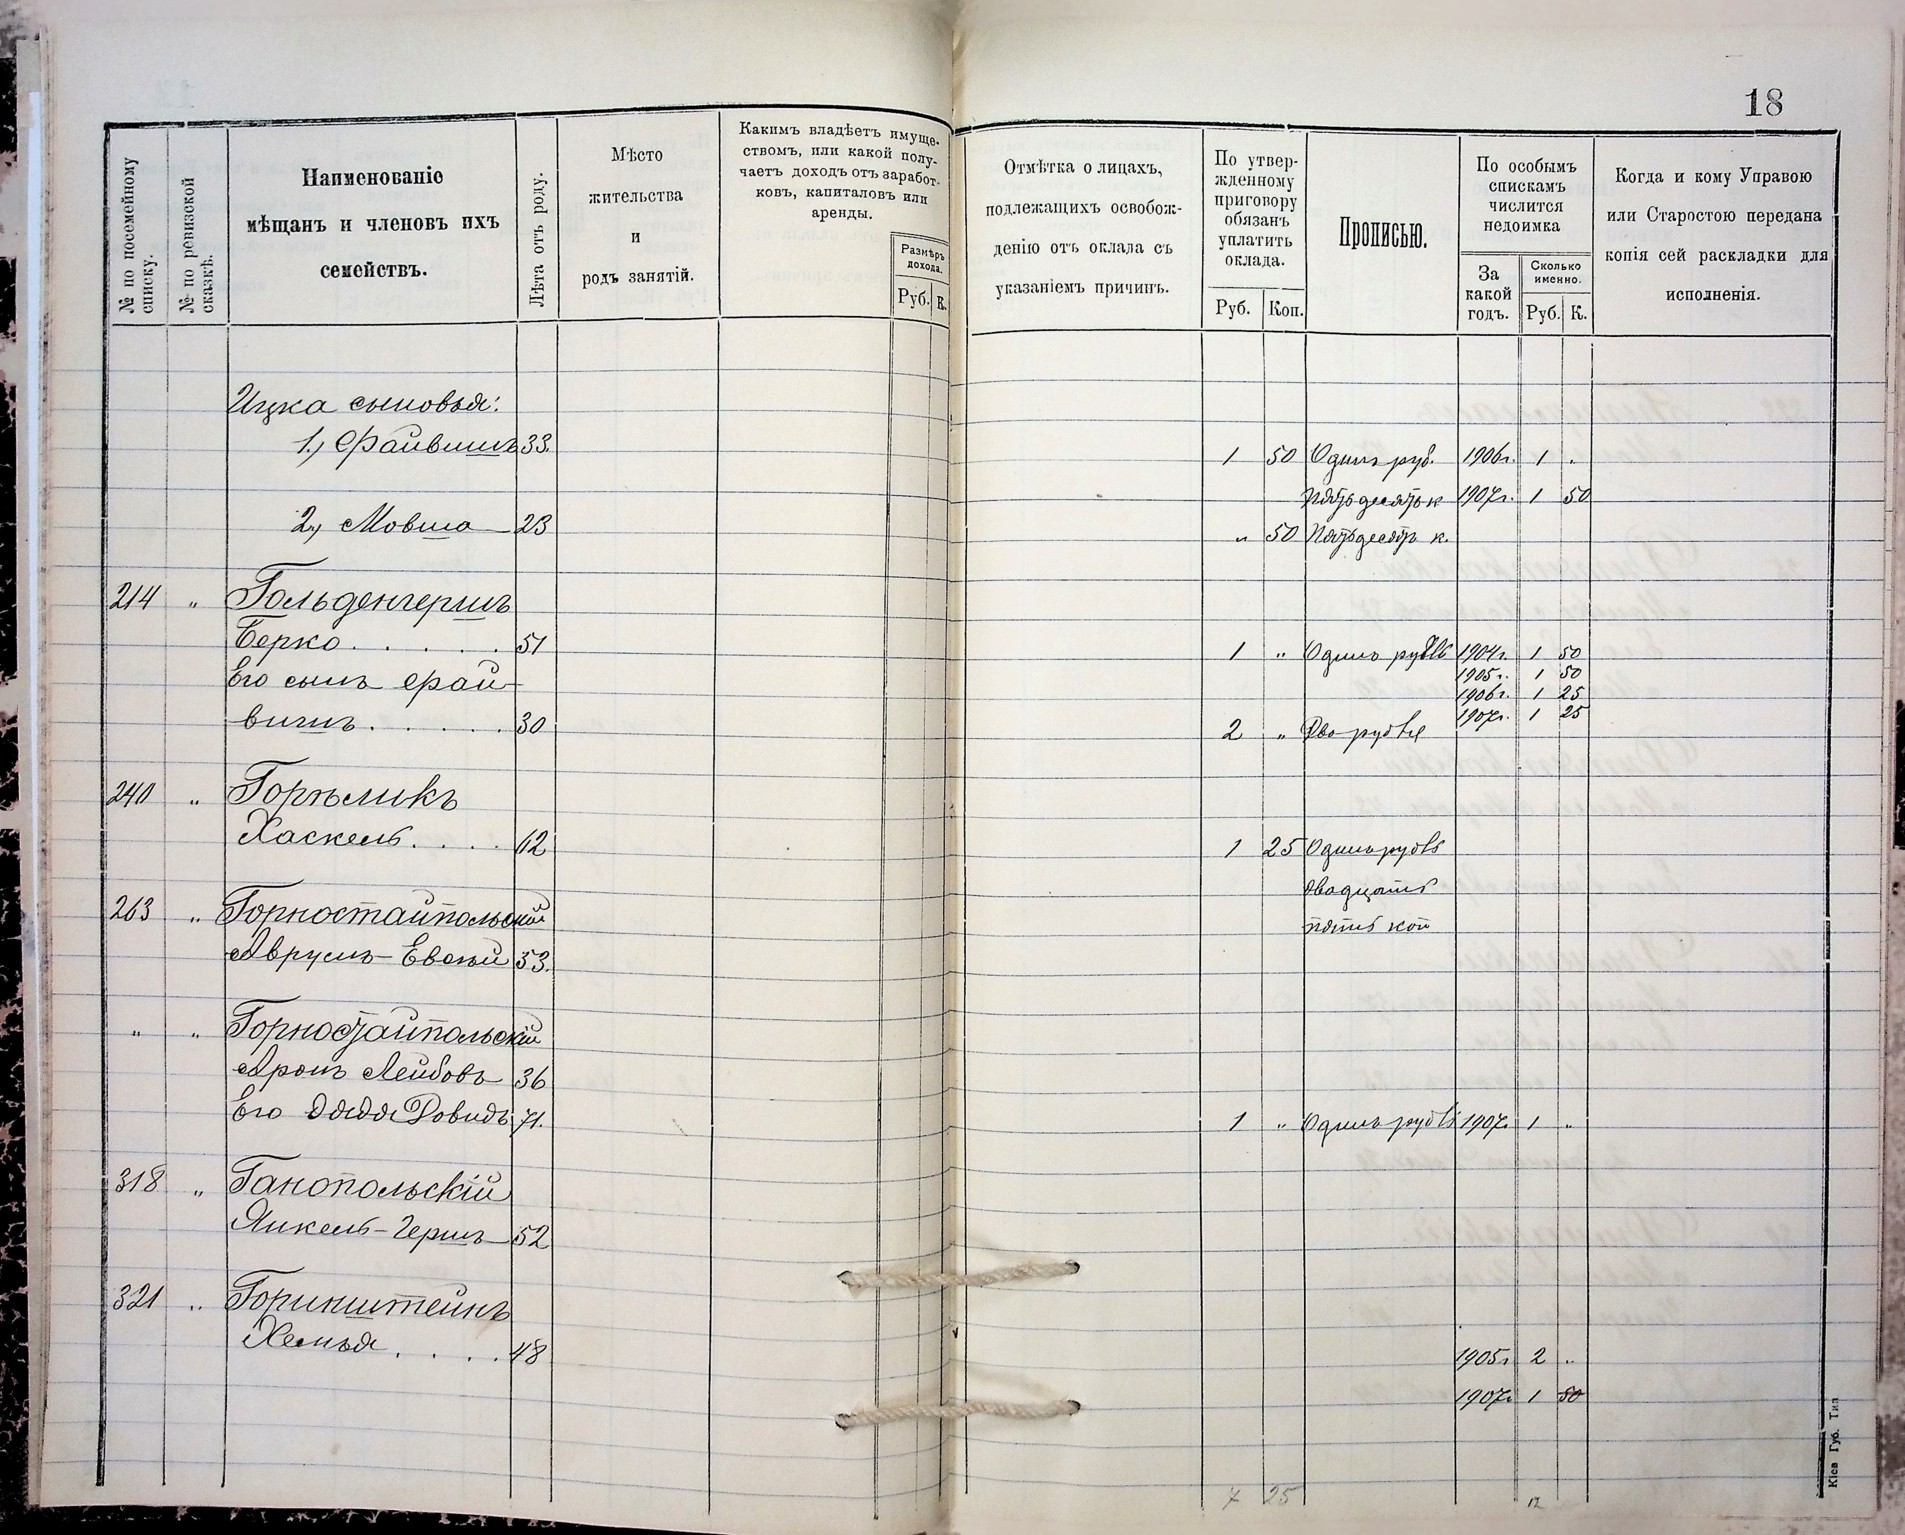 18
№ по посемейному списку.
№ по ревизской сказкѣ.
Наименованіе
мѣщанъ и членовъ ихъ
семействъ.
Лѣта отъ роду.
Мѣсто
жительства
и
родъ занятій.
Какимъ владѣетъ имуще-
ствомъ, или какой полу-
чаетъ доходъ отъ заработ-
ковъ, капиталовъ или
аренды.
Размѣръ
дохода.
Руб. К.
Отмѣтка о лицахъ,
подлежащихъ освобож-
денію отъ оклада съ
указаніемъ причинъ.
По утвер-
жденному
приговору
обязанъ
уплатить
оклада.
Руб. Коп.
Прописью.
По особымъ
спискамъ
числится
недоимка
За
какой
годъ.
Сколько
именно.
Руб. К.
Когда и кому Управою
или Старостою передана
копія сей раскладки для
исполненія.
Ицка сыновья:
1., Файвишъ 33. 1 50 Одинъ руб. 1906г. 1 „
пятьдесятъ к 1907г. 1 50
2., Мовша 23 „ 50 Пятьдесятъ к.
214 „ Гольденгершъ
Берко . . . . . 51 1 „ Одинъ рубль 1904г. 1 50
Его сынъ Фай- 1905г. 1 50
1906г. 1 25
вишъ . . . . . 30 2 „ Два рубля 1907г. 1 25
240 „ Горѣликъ
Хаскель . . . . 62 1 25 Одинъ рубль
двадцать
263 „ Горностайпольскій пять коп
Аврумъ-Евсей 53.
„ „ Горностайпольскій
Аронъ Лейбовъ 36
Его дядя Довидъ 71. 1 „ Одинъ рубль 1907г. 1 „
318 „ Ганопольскій
Янкель-Гершъ 52
321 „ Горинштейнъ
Хемья . . . . 48 1905г 2 „
1907г 1 50
7 25 12
Кіев Губ. Тип